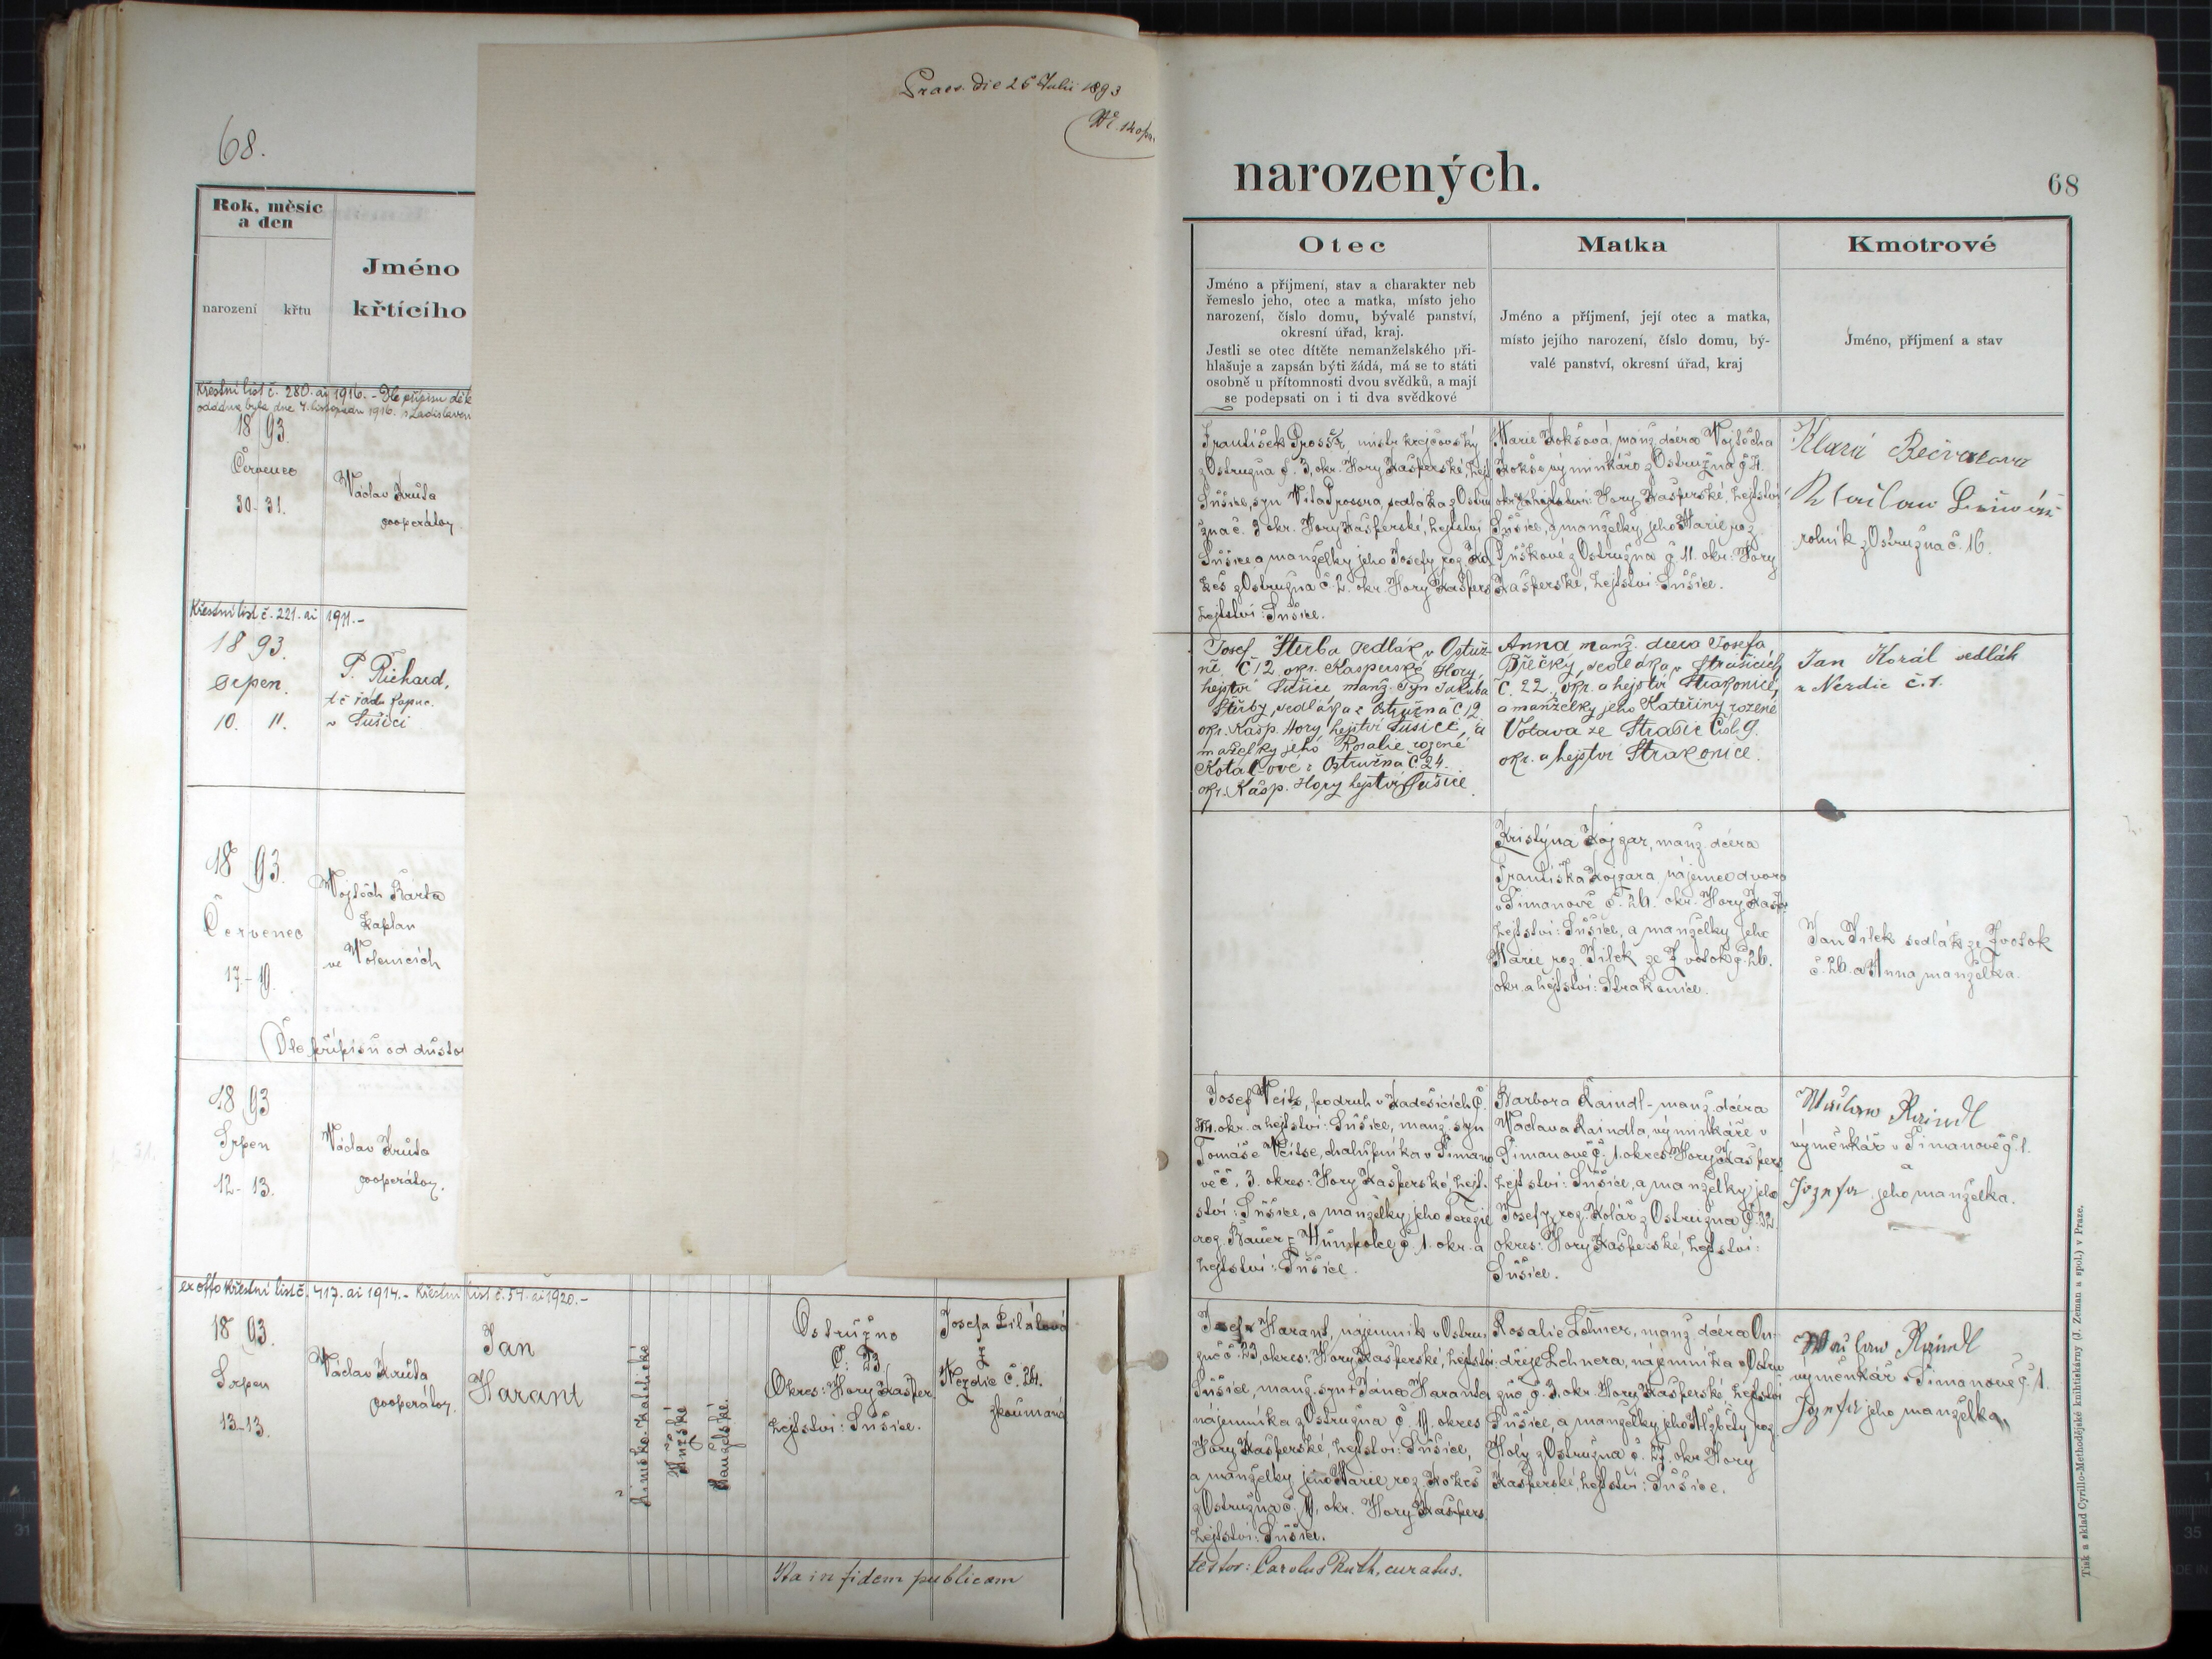 68.
Rok, měsíc
a den
narození
křtu
Jméno
křtícího
Křestní list č. 280. ai 1916. - Dle přípisu děk
oddána byla dne 7. listopadu 1916. s Ladislavem
18 93.
Červenec
30- 31.
Václav Kruta
cooperátor
Křestní list č. 221. ai 1911.-
18 93.
Srpen.
10. 11.
P. Richard,
t. č. řádu kapuc.
v Sušici
18 93.
Červenec
17.- 19.
Vojtěch Bárta
kaplan
ve Volenicích
(Dle přípisu od důsto
18 93
Srpen
12- 13.
Václav Kruta
cooperátor.
ex offo křestní list č. 417. ai 1914.- Křestní list č. 57. ai 1920.-
18 93.
Srpen
13-13.
Václav Kruta
cooperátor.
Jan
Harant
Římsko-Katolické
Mužské
Manželské
Ostružno
Č: 23
Okres: Hory Kašper.
hejtství: Sušice.
Josefa Pilátová
z
Nezdic č. 24.
zkoumaná
Ita in fidem publicam
Praes. die 25 Julii 1893
narozených.
68
Otec
Jméno a příjmení, stav a charakter neb
řemeslo jeho, otec a matka, místo jeho
narození, číslo domu, bývalé panství,
okresní úřad, kraj.
Jestli se otec dítěte nemanželského při-
hlašuje a zapsán býti žádá, má se to státi
osobně u přítomnosti dvou svědků, a mají
se podepsati on i ti dva svědkové
Matka
Jméno a příjmení, její otec a matka,
místo jejího narození, číslo domu, bý-
valé panství, okresní úřad, kraj
Kmotrové
Jméno, příjmení a stav
František Prosšr, mistr krejčovský
z Ostružna č. 3, okr. Hory Kašperské, hejt
Sušice, syn Víta Prossra, sedláka z Ostru
žna č. 3 okr. Hory Kašperské, hejtství
Sušice a manželky jeho Josefy roz. Ko
keš z Ostružna č. 2. okr. Hory Kašpers
hejtství: Sušice.
Marie Kokšová, manž. dcera Vojtěcha
Kokše, výminkáře z Ostružna č. 4.
okr. a hejtství: Hory Kašperské, hejtství
Sušice, a manželky jeho Marie roz
z Ostružna č. 11. okr: Hory
Kašperské, hejtství: Sušice.
Klára
rolník z Ostružna č. 16.
Josef Štěrba sedlák v Ostuž-
ně Č 12 okr. Kasperské Hory,
hejtství Sušice manž. syn Jakuba
Štěrby, sedláka z Ostružna č 12
okr. Kasp. Hory hejtství Sušice, a
mažełky jeho Rosalie rozené
z Ostružna č. 24.
okr. Kašp. Hory hejtství Sušice.
Anna manž. dcera Josefa
Břečky, sedláka v Strašicích
Č. 22., okr. a hejtství Strakonice,
a manželky jeho Kateřiny rozené
Votava ze Strašic Čísl. 9.
okr. a hejství Strakonice.
Jan Korál sedlák
z Nezdic č. 1.
Kristýna Kojzar, manž. dcera
Františka Kojzara, nájemce dvora
v Šimanově č. 26. okr. Hory Kašp
hejtství: Sušice, a manželky jeho
Marie roz. Jílek ze Zvotok č. 26.
okr. a hejtství: Strakonice.
Jan Jílek sedlák ze Zvotok
č. 26. a Anna manželka.
Josef Veits, podruh v Kadešicích č.
14. okr. a hejtství: Sušice, manž. syn
Tomáše Veitse, chalupníka v Šimano
vě č. 3. okres: Hory Kašperské, hejt.
ství: Sušice, a manželky jeho Terezie
roz. Bauer z Humpolce č. 1. okr. a
hejtství: Sušice.
Barbora Raindl - manž. dcera
Václava Raindla, výminkáře v
Šimanově č. 1. okres: Hory Kašpers
hejtství: Sušice, a manželky jeho
Josefy, roz. Kolář z Ostružna č. 32.
okres: Hory Kašperské, hejtství:
Sušice.
Václaw Raindl
výměnkář v Šimanově č. 1.
a
Jozefa jeho manželka.
Josef Harant, nájemník v Ostru
žně č. 23, okres: Hory Kašperské, hejtství
Sušice, manž. syn + Jána Haranta
nájemníka z Ostružna č. 11. okres
Hory Kašperské, hejtství: Sušice,
a manželky jeho Marie roz. Kokeš
z Ostružna č. 11, okr. Hory Kašpers.
hejtství: Sušice.
Rosalie Lehner, manž. dcera On-
dřeje Lehnera, nájemníka v Ostru
žně č. 3. okr. Hory Kašperské, hejtství
Sušice, a manželky jeho Alžběty roz.
Holý z Ostružna č. 27. okr. Hory
Kašperské, hejtství: Sušice.
Václaw Raindl
výměnkář v Šimanově č. 1.
Jozefa jeho manželka
testor: Carolus Ruth, curatus.
Tisk a sklad Cyrillo-Methodějské knihtiskárny (J. Zeman a spol.) v Praze.